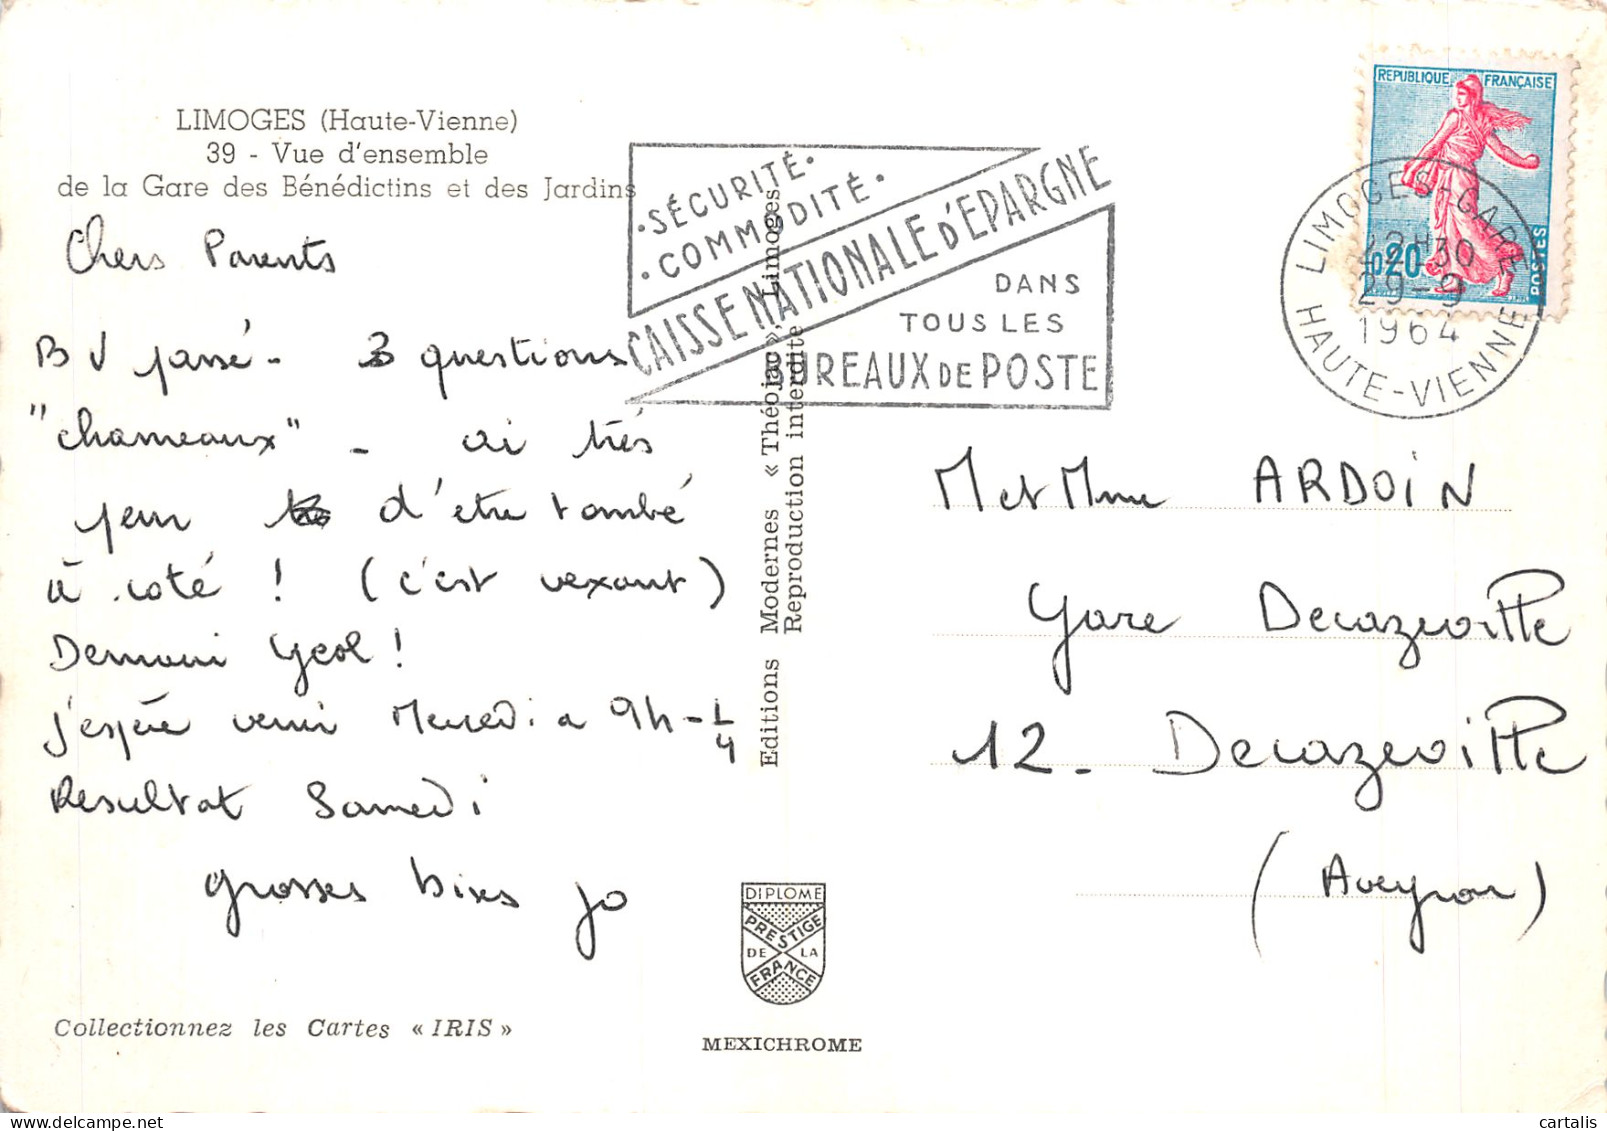 LIMOGES (Haute-Vienne)
39 - Vue d'ensemble
de la Gare des Bénédictins et des Jardins
Chers Parents
B V passé - 3 questions
"chameaux" - ai très
peur d'être tombé
à coté ! (c'est vexant)
Demain Géol !
J'espère venir Mercredi a 9h-1/4
Resultat Samedi
grosses bises jo
Collectionnez les Cartes « IRIS »
Editions Modernes « Théojac », Limoges
Reproduction interdite
DIPLOME
PRESTIGE
DE LA
FRANCE
MEXICHROME
• SÉCURITÉ •
• COMMODITÉ •
CAISSE NATIONALE D'EPARGNE
DANS
TOUS LES
BUREAUX DE POSTE
REPUBLIQUE FRANÇAISE
0,20
POSTES
LIMOGES-GARE
12H30
29-9
1964
HAUTE-VIENNE
M et Mme ARDOIN
Gare Decazeville
12 - Decazeville
(Aveyron)
cartalis